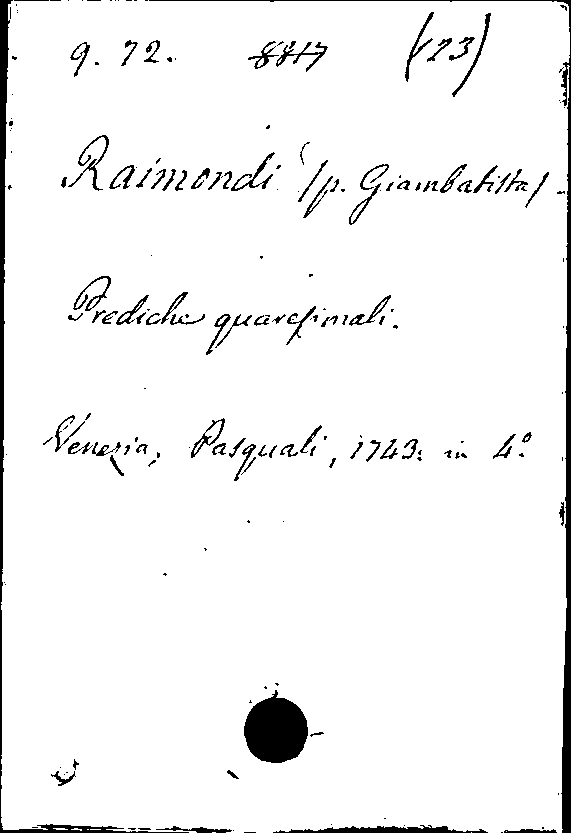 9. 72. 8817 (V23)
Raimondi /p. Giambatista/
Prediche quaresimali.
Venezia, Pasquali, 1743. in 4.º